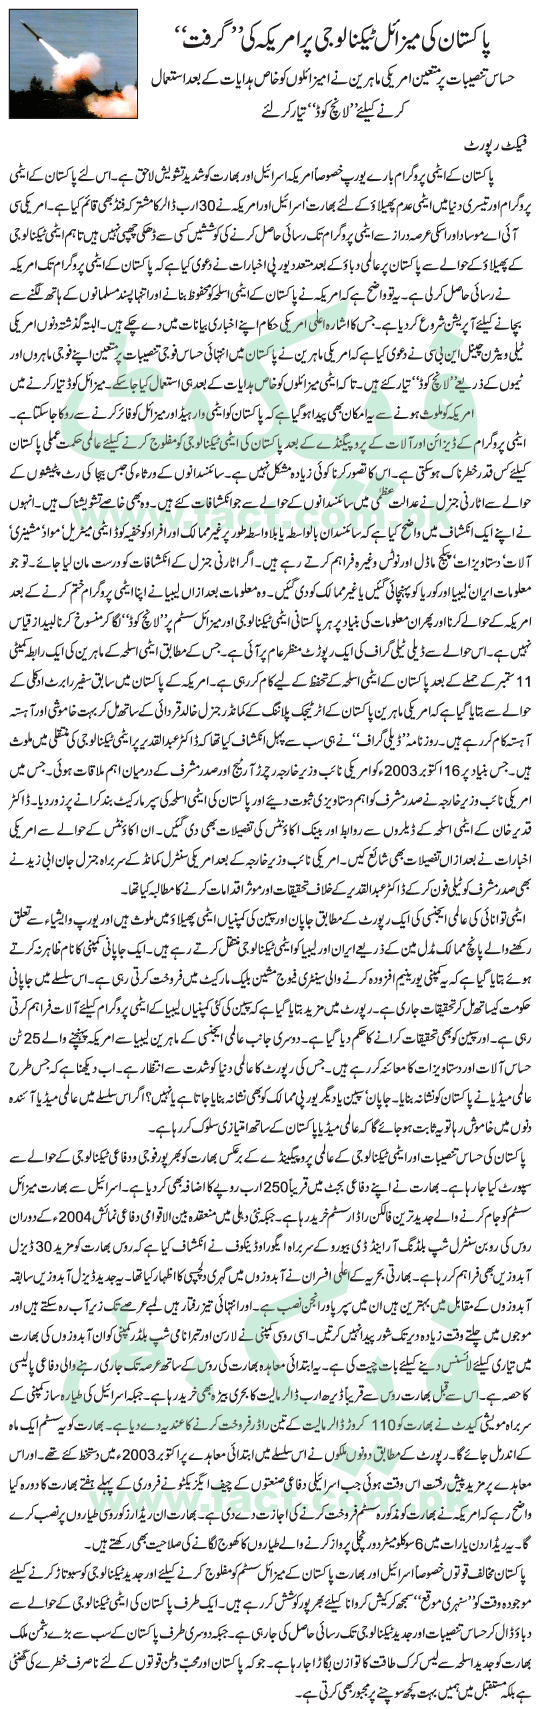 پاکستان کی میزائل ٹیکنالوجی پر امریکہ کی ’’گرفت‘‘
حساس تنصیبات پر متعین امریکی ماہرین نے امیزائلوں کو خاص ہدایات کے بعد استعمال
کرنے کیلئے ’’لانچ کوڈ‘‘ تیار کر لئے
فیکٹ رپورٹ
پاکستان کے ایٹمی پروگرام بارے یورپ خصوصاً امریکہ اسرائیل اور بھارت کو شدید تشویش لاحق ہے۔ اس لئے پاکستان کے ایٹمی
پروگرام اور تیسری دنیا میں ایٹمی عدم پھیلاؤ کے لئے بھارت‘ اسرائیل اور امریکہ نے 30 ارب ڈالر کا مشترکہ فنڈ بھی قائم کیا ہے۔ امریکی سی
آئی اے موساد اور اسکی عرصہ دراز سے ایٹمی پروگرام تک رسائی حاصل کرنے کی کوششیں کسی سے ڈھکی چھپی نہیں ہیں تاہم ایٹمی ٹیکنالوجی
کے پھیلاؤ کے حوالے سے پاکستان پر عالمی دباؤ کے بعد متعدد یورپی اخبارات نے دعویٰ کیا ہے کہ پاکستان کے ایٹمی پروگرام تک امریکہ
نے رسائی حاصل کر لی ہے۔ یہ تو واضح ہے کہ امریکہ نے پاکستان کے ایٹمی اسلحہ کو محفوظ بنانے اور انتہا پسند مسلمانوں کے ہاتھ لگنے سے
بچانے کیلئے آپریشن شروع کر دیا ہے۔ جس کا اشارہ اعلیٰ امریکی حکام اپنے اخباری بیانات میں دے چکے ہیں۔ البتہ گذشتہ دنوں امریکی
ٹیلی ویژن چینل این بی سی نے دعویٰ کیا ہے کہ امریکی ماہرین نے پاکستان میں انتہائی حساس فوجی تنصیبات پر متعین اپنے فوجی ماہروں اور
ٹیموں کے ذریعے ’’لانچ کوڈ‘‘ تیار کئے ہیں۔ تاکہ ایٹمی میزائلوں کو خاص ہدایات کے بعد ہی استعمال کیا جا سکے۔ میزائل کوڈ تیار کرنے میں
امریکہ کو ملوث ہونے سے یہ امکان بھی پیدا ہو گیا ہے کہ پاکستان کو ایٹمی وار ہیڈ اور میزائل کو فائر کرنے سے روکا جا سکتا ہے۔
ایٹمی پروگرام کے ڈیزائن اور آلات کے پروپیگنڈے کے بعد پاکستان کی ایٹمی ٹیکنالوجی کو مفلوج کرنے کیلئے عالمی حکمت عملی پاکستان
کیلئے کس قدر خطرناک ہو سکتی ہے۔ اس کا تصور کرنا کوئی زیادہ مشکل نہیں ہے۔ سائنسدانوں کے ورثاء کی حبس بیجا کی رٹ پٹیشنوں کے
حوالے سے اٹارنی جنرل نے عدالت عظمیٰ میں سائنسدانوں کے حوالے سے جو انکشافات کئے ہیں۔ وہ بھی خاصے تشویشناک ہیں۔ انہوں
نے اپنے ایک انکشاف میں واضح کیا ہے کہ سائنسدان بالواسطہ یا بلاواسطہ طور پر غیر ممالک اور افراد کو خفیہ کوڈ ایٹمی میٹریل‘ مواد‘ مشینری‘
آلات‘ دستاویزات‘ پیکیج ماڈل اور نوٹس وغیرہ فراہم کرتے رہے ہیں۔ اگر اٹارنی جنرل کے انکشافات کو درست مان لیا جائے۔ تو جو
معلومات ایران‘ لیبیا اور کوریا کو پہنچائی گئیں یا غیر ممالک کو دی گئیں۔ وہ معلومات بعد ازاں لیبیا نے اپنا ایٹمی پروگرام ختم کرنے کے بعد
امریکہ کے حوالے کرنا اور پھر ان معلومات کی بنیاد پر ہر پاکستانی ایٹمی ٹیکنالوجی اور میزائل سسٹم پر ’’لانچ کوڈ‘‘ لگا کر منسوخ کرنا بعید از قیاس
نہیں ہے۔ اس حوالے سے ڈیلی ٹیلی گراف کی ایک رپورٹ منظر عام پر آئی ہے۔ جس کے مطابق ایٹمی اسلحہ کے ماہرین کی ایک رابطہ کمیٹی
11 ستمبر کے حملے کے بعد پاکستان کے ایٹمی اسلحہ کے تحفظ کے لیے کام کر رہی ہے۔ امریکہ کے پاکستان میں سابق سفیر رابرٹ اوکلے کے
حوالے سے بتایا گیا ہے کہ امریکی ماہرین پاکستان کے اٹرٹیجک پلاننگ کے کمانڈر جنرل خالد قدوائی کے ساتھ مل کر بہت خاموشی اور آہستہ
آہستہ کام کر رہے ہیں۔ روزنامہ ’’ڈیلی گراف‘‘ نے ہی سب سے پہلے انکشاف کیا تھا کہ ڈاکٹر عبدالقدیر پر ایٹمی ٹیکنالوجی کی منتقلی میں ملوث
ہیں۔ جس بنیاد پر 16 اکتوبر 2003ء کو امریکی نائب وزیر خارجہ رچرڈ آرمیٹج اور صدر مشرف کے درمیان اہم ملاقات ہوئی۔ جس میں
امریکی نائب وزیر خارجہ نے صدر مشرف کو اہم دستاویزی ثبوت دیئے اور پاکستان کی ایٹمی اسلحہ کی سپر مارکیٹ بند کرانے پر زور دیا۔ ڈاکٹر
قدیر خان کے ایٹمی اسلحہ کے ڈیلروں سے روابط اور بینک اکاؤنٹس کی تفصیلات بھی دی گئیں۔ ان اکاؤنٹس کے حوالے سے امریکی
اخبارات نے بعد ازاں تفصیلات بھی شائع کیں۔ امریکی نائب وزیر خارجہ کے بعد امریکی سنٹرل کمانڈ کے سربراہ جنرل جان ابی زید نے
بھی صدر مشرف کو ٹیلی فون کر کے ڈاکٹر عبدالقدیر کے خلاف تحقیقات اور موثر اقدامات کرنے کا مطالبہ کیا تھا۔
ایٹمی توانائی کی عالمی ایجنسی کی ایک رپورٹ کے مطابق جاپان اور سپین کی کمپنیاں ایٹمی پھیلاؤ میں ملوث ہیں اور یورپ و ایشیاء سے تعلق
رکھنے والے پانچ ممالک مڈل مین کے ذریعے ایران اور لیبیا کو ایٹمی ٹیکنالوجی منتقل کرتے رہے ہیں۔ ایک جاپانی کمپنی کا نام ظاہر نہ کرتے
ہوئے بتایا گیا ہے کہ یہ کمپنی یورینیم افزودہ کرنے والی سینٹری فیوج مشین بلیک مارکیٹ میں فروخت کرتی رہی ہے۔ اس سلسلے میں جاپانی
حکومت کیساتھ مل کر تحقیقات جاری ہے۔ رپورٹ میں مزید بتایا گیا ہے کہ سپین کی کئی کمپنیاں لیبیا کے ایٹمی پروگرام کیلئے آلات فراہم کرتی
رہی ہے۔ اور سپین کو بھی تحقیقات کرانے کا حکم دیا گیا ہے۔ دوسری جانب عالمی ایجنسی کے ماہرین لیبیا سے امریکہ پہنچنے والے 25 ٹن
حساس آلات اور دستاویزات کا معائنہ کر رہے ہیں۔ جس کی رپورٹ کا عالمی دنیا کو شدت سے انتظار ہے۔ اب دیکھنا ہے کہ جس طرح
عالمی میڈیا نے پاکستان کو نشانہ بنایا۔ جاپان‘ سپین یا دیگر یورپی ممالک کو بھی نشانہ بنایا جاتا ہے یا نہیں؟ اگر اس سلسلے میں عالمی میڈیا آئندہ
دنوں میں خاموش رہا تو یہ ثابت ہو جائے گا کہ عالمی میڈیا پاکستان کے ساتھ امتیازی سلوک کر رہا ہے۔
پاکستان کی حساس تنصیبات اور ایٹمی ٹیکنالوجی کے عالمی پروپیگنڈے کے برعکس بھارت کو بھرپور فوجی و دفاعی ٹیکنالوجی کے حوالے سے
سپورٹ کیا جا رہا ہے۔ بھارت نے اپنے دفاعی بجٹ میں قریباً 250 ارب روپے کا اضافہ بھی کر دیا ہے۔ اسرائیل سے بھارت میزائل
سسٹم کو جام کرنے والے جدید ترین فالکن راڈار سسٹم خرید رہا ہے۔ جبکہ نئی دہلی میں منعقدہ بین الاقوامی دفاعی نمائش 2004ء کے دوران
روس کی روبن سنٹرل شپ بلڈنگ آر اینڈ ڈی بیورو کے سربراہ ایگور اوڈینکوف نے انکشاف کیا ہے کہ روس بھارت کو مزید 30 ڈیزل
آبدوزیں بھی فراہم کر رہا ہے۔ بھارتی بحریہ کے اعلیٰ افسران نے آبدوزوں میں گہری دلچسپی کا اظہار کیا تھا۔ یہ جدید ڈیزل آبدوزیں سابقہ
آبدوزوں کے مقابل میں بہترین ہیں ان میں سپر پاور انجن نصب ہے۔ اور انتہائی تیز رفتار ہیں لمبے عرصے تک زیر آب رہ سکتے ہیں اور
موجوں میں چلتے وقت زیادہ دیر تک شور پیدا نہیں کرتیں۔ اسی روسی کمپنی نے لارسن اور تبرا نامی شپ بلڈر کمپنی کو ان آبدوزوں کی بھارت
میں تیاری کیلئے لائسنس دینے کیلئے بات چیت کی ہے۔ یہ ابتدائی معاہدہ بھارت کی روس کے ساتھ عرصہ تک جاری رہنے والی دفاعی پالیسی
کا حصہ ہے۔ اس سے قبل بھارت روس سے قریباً ڈیڑھ ارب ڈالر مالیت کا بحری بیڑہ بھی خرید رہا ہے۔ جبکہ اسرائیل کی طیارہ ساز کمپنی کے
سربراہ مویشی کیدٹ نے بھارت کو 110 کروڑ ڈالر مالیت کے تین راڈار فروخت کرنے کا عندیہ دے دیا ہے۔ بھارت کو یہ سسٹم ایک ماہ
کے اندر مل جائے گا۔ رپورٹ کے مطابق دونوں ملکوں نے اس سلسلے میں ابتدائی معاہدے پر اکتوبر 2003ء میں دستخط کئے تھے۔ اور اس
معاہدے پر مزید پیش رفت اس وقت ہوئی جب اسرائیلی دفاعی صنعتوں کے چیف ایگزیکٹو نے فروری کے پہلے ہفتے بھارت کا دورہ کیا
واضح رہے کہ امریکہ نے بھارت کو مذکورہ سسٹم فروخت کرنے کی اجازت دے دی ہے۔ بھارت ان ریڈارز کو روسی طیاروں پر نصب کرے
گا۔ یہ ریڈار دن یا رات میں 6 سو کلومیٹر دور نچلی پرواز کرنے والے طیاروں کا کھوج لگانے کی صلاحیت بھی رکھتے ہیں۔
پاکستان مخالف قوتوں خصوصاً اسرائیل اور بھارت پاکستان کے میزائل سسٹم کو مفلوج کرنے کیلئے اور جدید ٹیکنالوجی کو سبوتاژ کرنے کیلئے
موجودہ وقت کو ’’سنہری موقع‘‘ سمجھ کر کیش کروانا کیلئے بھرپور کوشش کر رہے ہیں۔ ایک طرف پاکستان کی ایٹمی ٹیکنالوجی کے حوالے سے
دباؤ ڈال کر حساس تنصیبات اور جدید ٹیکنالوجی تک رسائی حاصل کی جا رہی ہے۔ جبکہ دوسری طرف پاکستان کے سب سے بڑے دشمن ملک
بھارت کو جدید اسلحہ سے لیس کر کے طاقت کا توازن بگاڑا جا رہا ہے۔ جو کہ پاکستان اور محب وطن قوتوں کے لئے نا صرف خطرے کی گھنٹی
ہے بلکہ مستقبل میں ہمیں بہت کچھ سوچنے پر مجبور بھی کرتی ہے۔
فیکٹ
www.fact.com.pk
فیکٹ
www.fact.com.pk